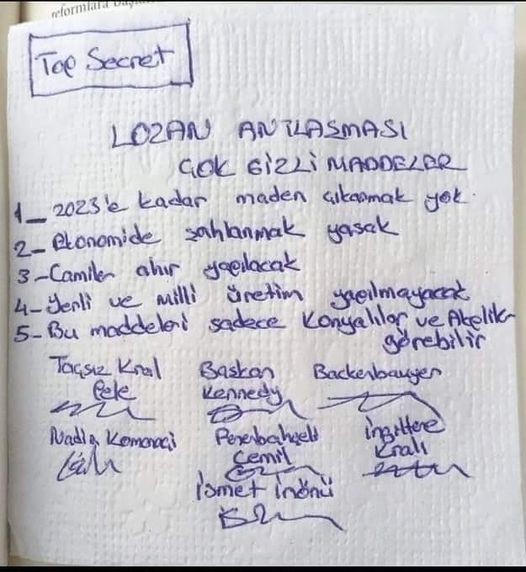 reformlara başla
Top Secret
LOZAN ANTLASMASI
ÇOK GİZLİ MADDELER
1_ 2023'e kadar maden çıkarmak yok.
2- Ekonomide şahlanmak yasak
3-Camiler ahır yapılacak
4-Yerli ve milli üretim yapılmayacak
5-Bu maddeleri sadece Konyalılar ve Akpliler
görebilir
Taçsız Kral Başkan Backenbauyer
Pele Kennedy
Nadia Komanaçi Fenerbahçeli İngiltere
Cemil Kralı
İsmet İnönü